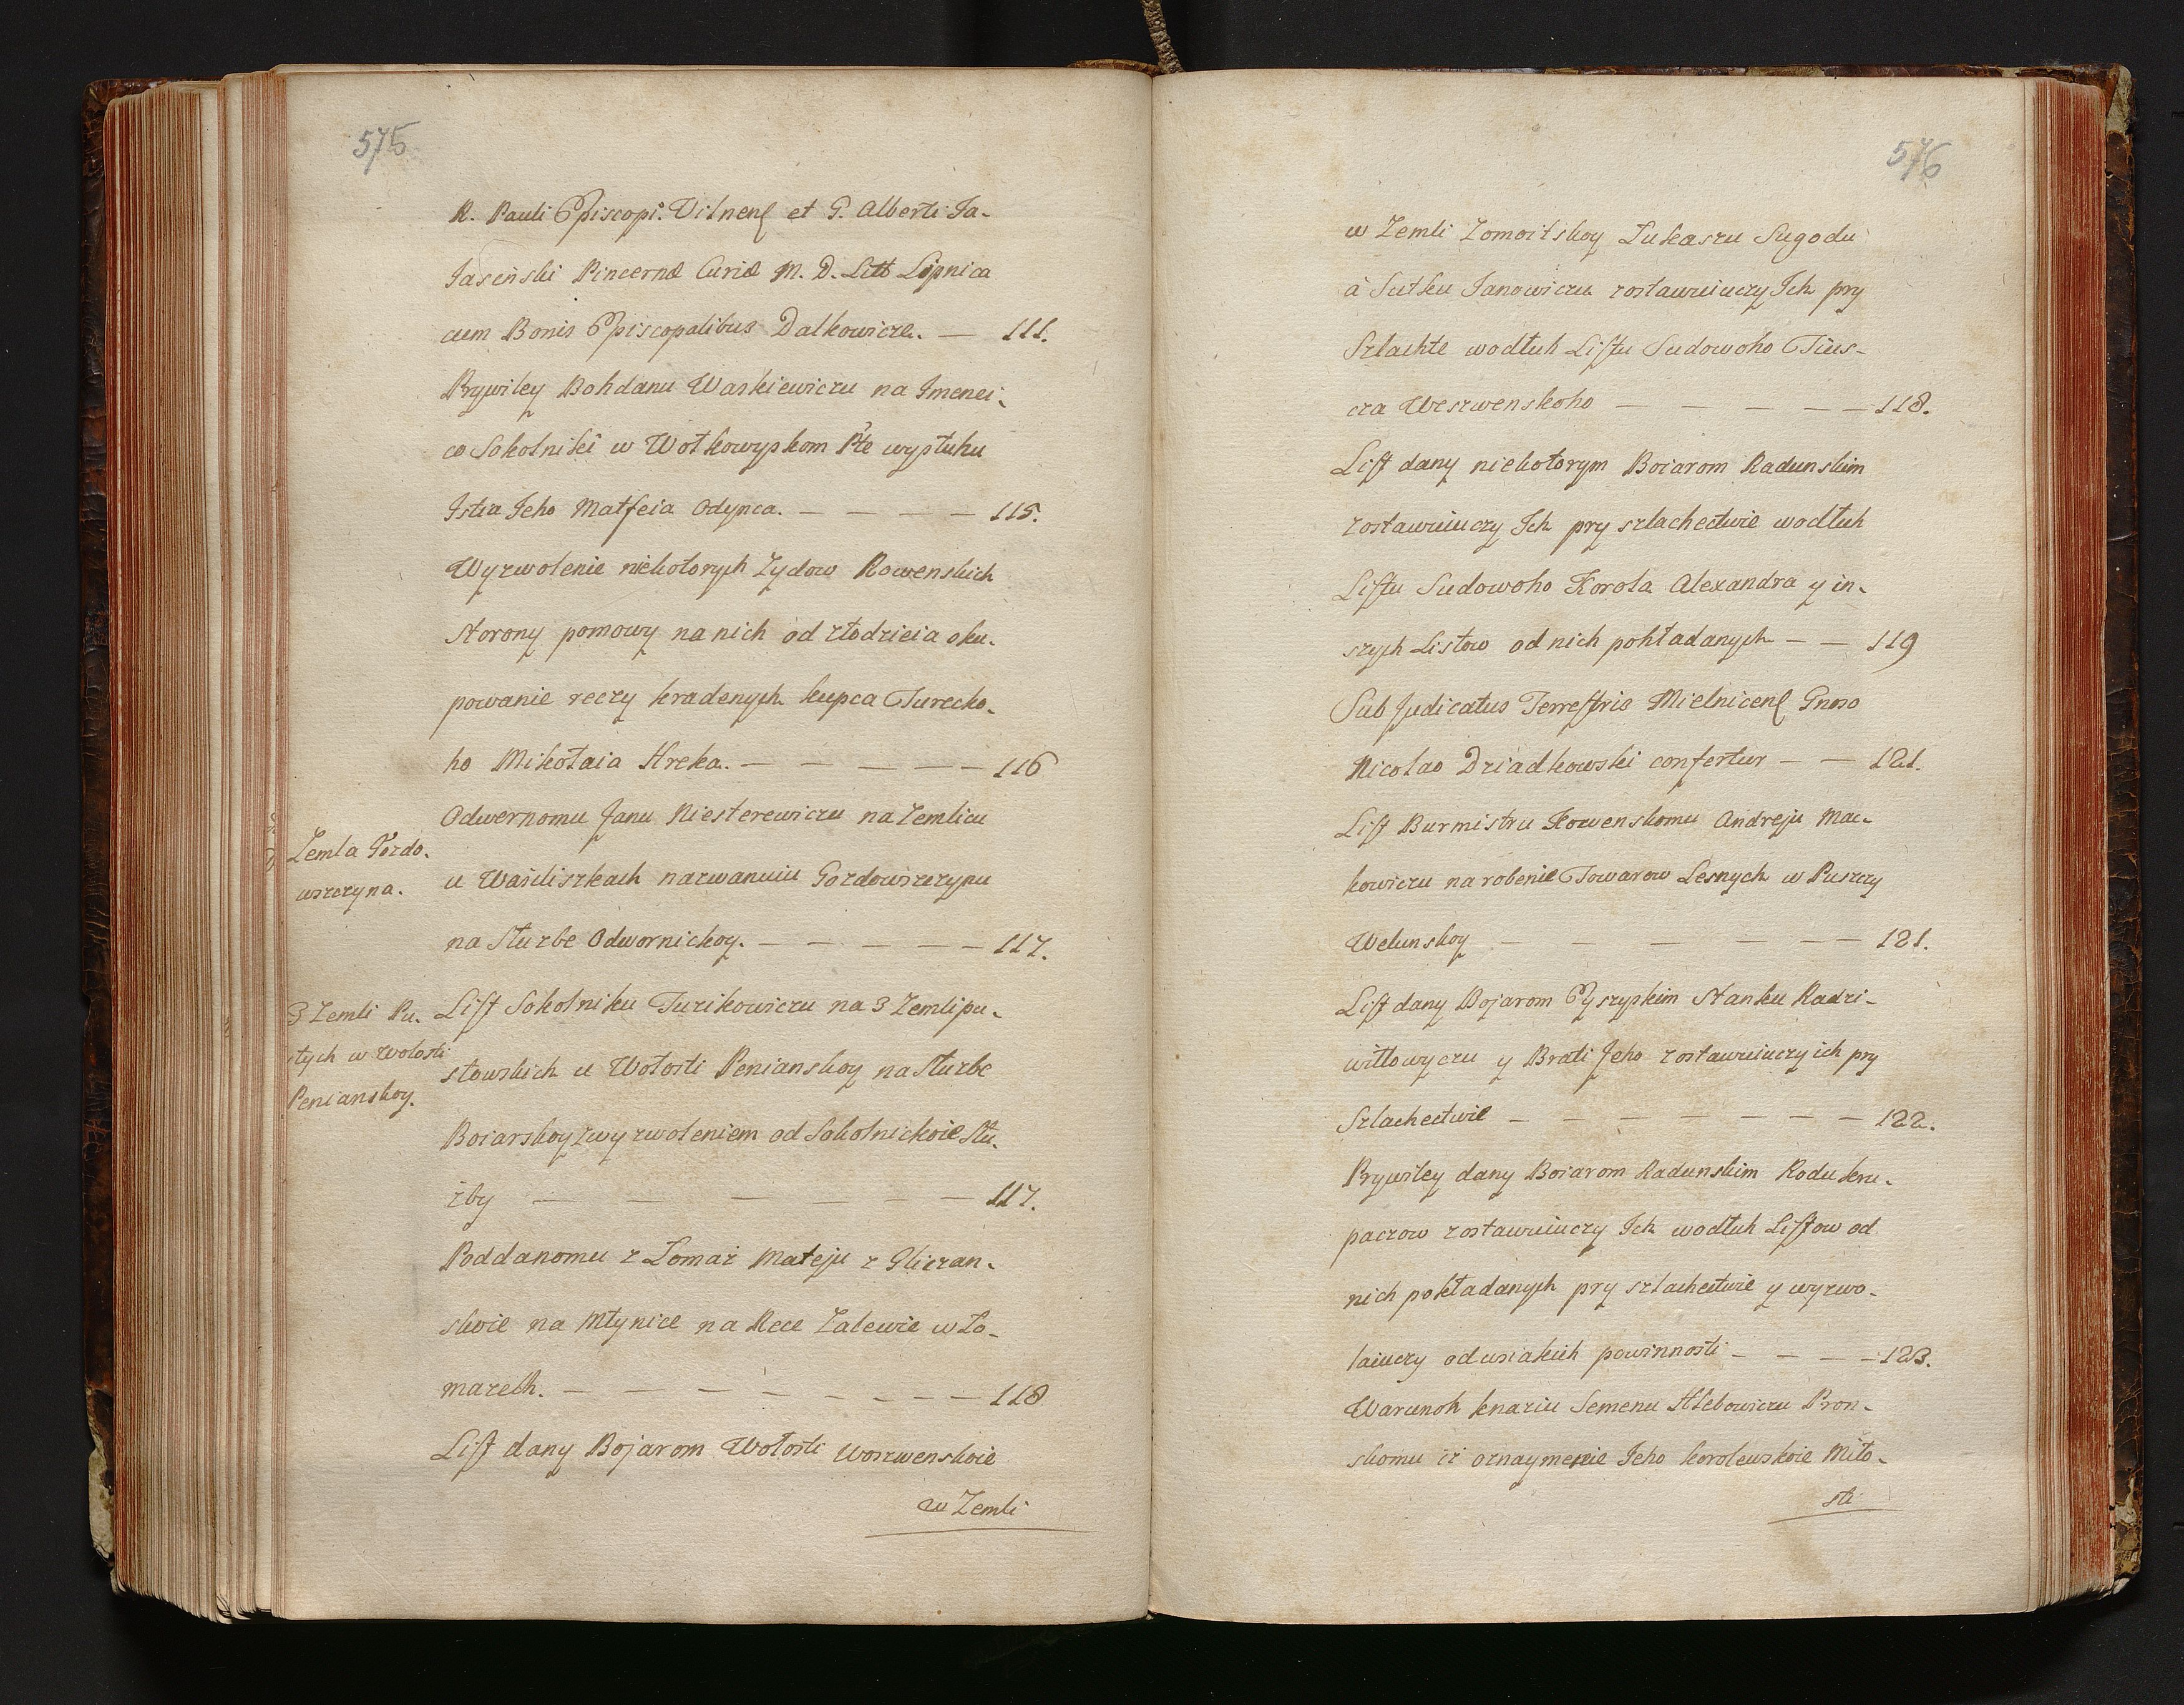 575
R. Pauli Episcopi. Vilnens et G. Alberti Ja-
Jasieński Pincernæ Curiæ M. D. Litt Lipnica
cum Bonis Episcopalibus Dalkowicze. — 111.
Prywiley Bohdanu Waskiewiczu na Imenei-
co Sokolniki w Wołkowyskom Pte wysłuhu
Istia Jeho Matfeia Odynca. — — — — 115.
Wyzwolenie niekotorych Zydow Kowenskich
Storony pomowy na nich od złodzieia oku-
powanie reczy kradenych kupca Turecko-
ho Mikołaia Hreka. — — — — — 116
Odwernomu Janu Niesterewiczu na Zemlicu
Zemla Gozdo-
wszczyna.
u Wasiliszkach nazwanuiu Gozdowszczynu
na Służbe Odwornickoy. — — — — — 117.
3 Zemli Pu-
stych w Wołosti
Penianskoy.
List Sokolniku Jurikowiczu na 3 Zemli pu-
stowskich u Wołosti Penianskoy na Służbe
Boiarskoy z wyzwoleniem od Sokolnickoie Słu-
żby — — — — — 117.
Poddanomu z Łomaz Mateju z Gliczan-
skoie na Młynice na Rece Zalewie w Ło-
mazech. — — — — — — — — 118
List dany Bojarom Wołosti Woszwenskoie
w Zemli
576
w Zemli Zomoitskoy Łukaszu Sugodu
à Sutku Janowiczu zostawuiuczy Jch pry
Szlachte wodłuh Listu Sudowoho Tius-
cza Weszwenskoho — — — — — 118.
List dany niekotorym Boiarom Radunskim
zostawuiuczy Jch pry szlachectwie wodłuh
Listu Sudowoho Korola Alexandra y in-
szych Listow od nich pokładanych — — 119
Sub Judicatus Terrestris Mielnicens Gnoso
Nicolao Dziadkowski confertur — — 121.
List Burmistru Kowenskomu Andreju Mac-
kowiczu na robenie Towarow Lesnych w Puszczy
Welunskoy — — — — — — 121.
List dany Bojarom Eyszyskim Stanku Radzi-
wiłłowyczu y Brati Jeho zostawuiuczy ich pry
Szlachectwie — — — — — — — 122.
Prywiley dany Boiarom Radunskim Rodu kru-
paczow zostawuiuczy Jch wodłuh Listow od
nich pokładanych pry szlachectwie y wyzwo-
laiuczy od wsiakich powinnosti — — — — 123.
Warunok kniaziu Semenu Hlebowiczu Pron-
skomu iż oznaymenie Jeho korolewskoie Miło-
sti